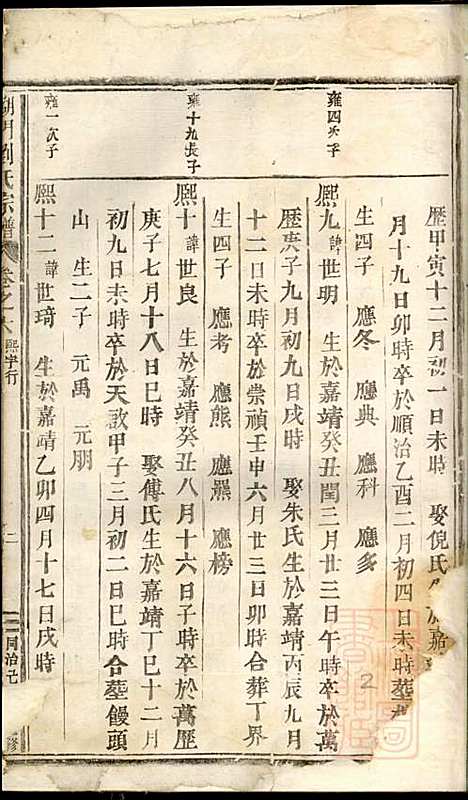 歷甲寅十二月初一日未時 娶倪氏生於嘉
月十九日卯時卒於順治乙酉二月初四日未時葬
生四子 應冬 應典 應科 應多
雍四次子
熙九諱世明 生於嘉靖癸丑閏三月廿三日午時卒於萬
歷庚子九月初九日戌時 娶朱氏生於嘉靖丙辰九月
十二日未時卒於崇禎壬申六月廿三日卯時合葬丁界
生四子 應考 應熊 應羆 應榜
雍十九長子
熙十諱世良 生於嘉靖癸丑八月十六日子時卒於萬歷
庚子七月十八日巳時 娶傅氏生於嘉靖丁巳十二月
初九日未時卒於天啟甲子三月初二日巳時合墓饅頭
山 生二子 元禹 元朋
雍一次子
熙十二諱世琦 生於嘉靖乙卯四月十七日戌時
湖門劉氏宗譜 卷之六 熙字行 二 同治己 修
2